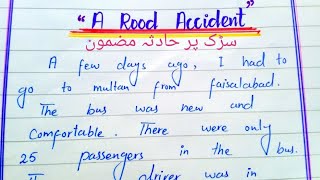 "A Rood Accident"
سڑک پر حادثہ مضمون
A few days ago, I had to
go to multan from faisalabad.
The bus was new and
Comfortable. There were only
25 passengers in the bus.
driver was in